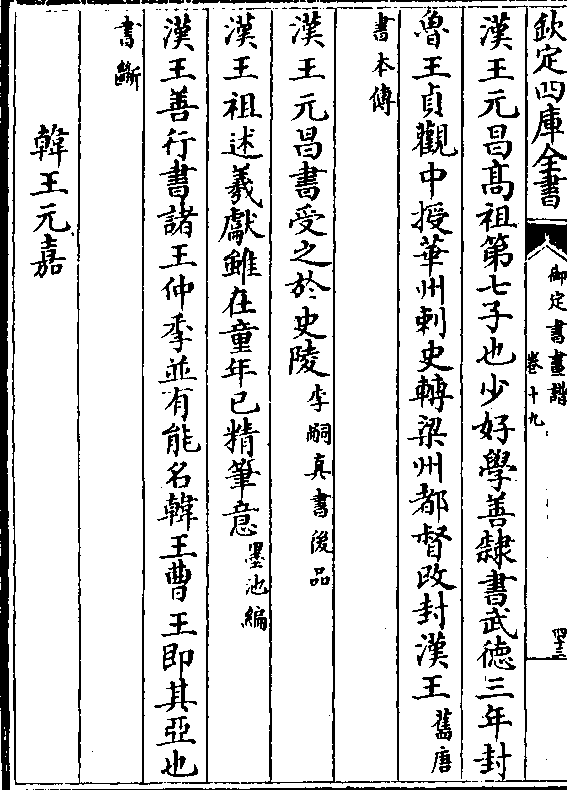 欽定四庫全書
御定書畫譜
卷十九
四十三
漢王元昌髙祖第七子也少好學善隸書武徳三年封
魯王貞觀中授華州刺史轉梁州都督改封漢王舊唐
書本傳
漢王元昌書受之於史陵李嗣真書後品
漢王祖述羲獻雖在童年已精筆意墨池編
漢王善行書諸王仲季並有能名韓王曹王即其亞也
書斷
韓王元嘉